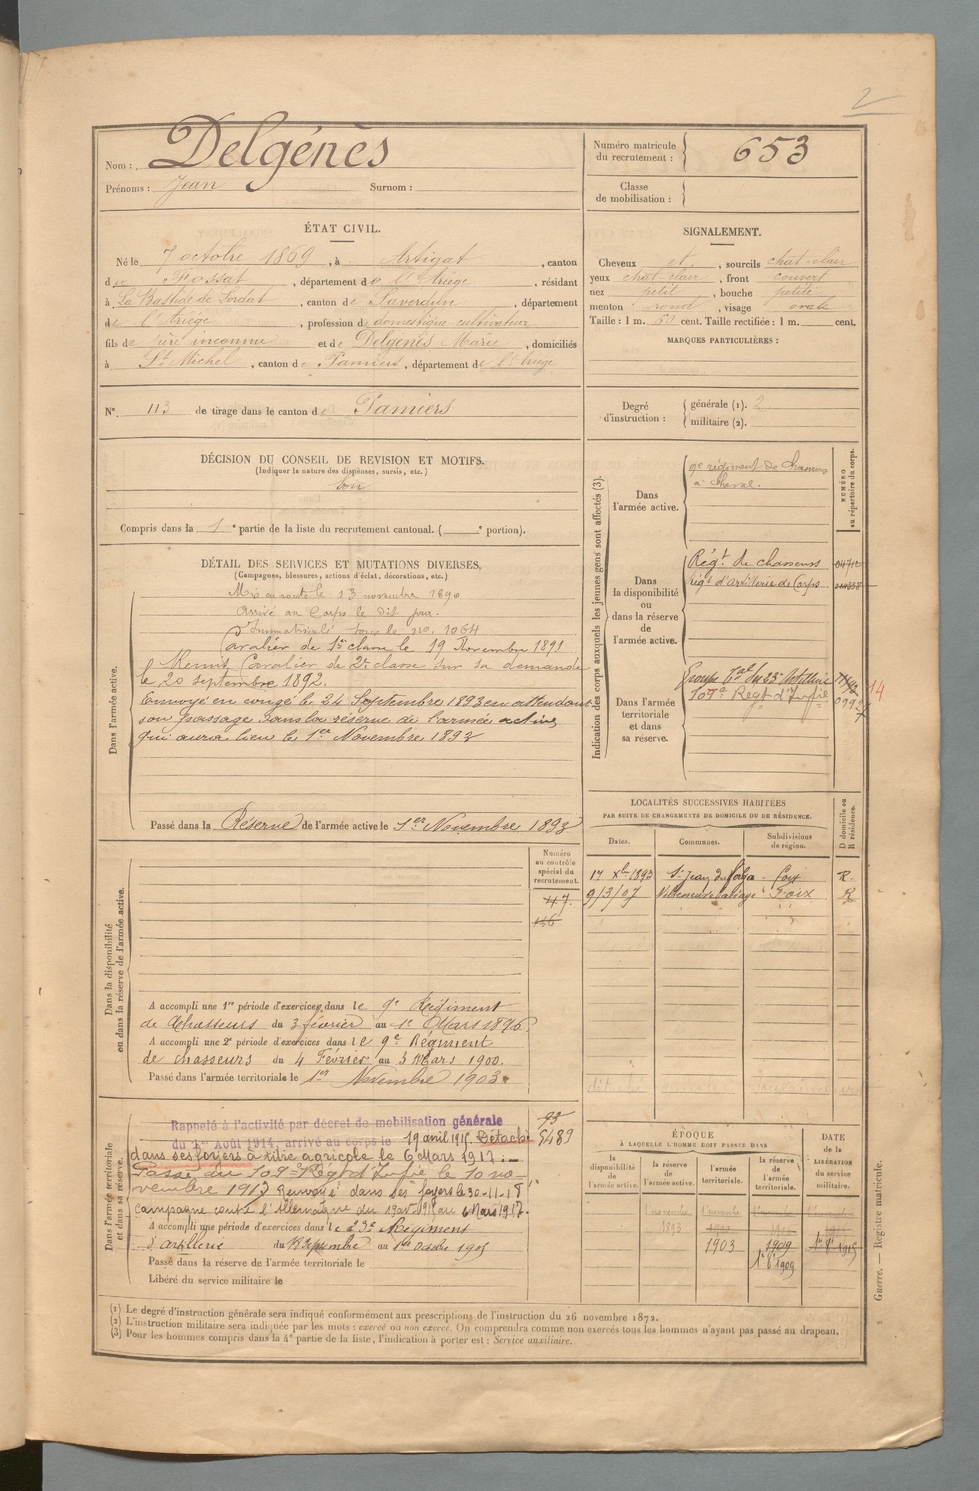 2
Nom : Delgénès
Prénoms : Jean Surnom :
Numéro matricule du recrutement : 653
Classe de mobilisation :
ÉTAT CIVIL.
Né le 7 octobre 1869, à Artigat, canton
du Fossat, département de l'Ariège, résidant
à La Bastide de Lordat, canton de Saverdun, département
de l'Ariège, profession de domestique cultivateur
fils de père inconnu et de Delgénès Marie, domiciliés
à St Michel, canton de Pamiers, département de l'Ariège
N° 113 de tirage dans le canton de Pamiers
SIGNALEMENT.
Cheveux et, sourcils chat-clair
yeux chat-clair, front couvert
nez petit, bouche petite
menton rond, visage ovale
Taille : 1 m. 60 cent. Taille rectifiée : 1 m. cent.
MARQUES PARTICULIÈRES :
Degré d'instruction : générale (1). 2
militaire (2).
DÉCISION DU CONSEIL DE REVISION ET MOTIFS.
(Indiquer la nature des dispenses, sursis, etc.)
bon
Compris dans la 1e partie de la liste du recrutement cantonal. ( e portion).
DÉTAIL DES SERVICES ET MUTATIONS DIVERSES.
(Campagnes, blessures, actions d'éclat, décorations, etc.)
Dans l'armée active.
Mis en route le 13 novembre 1890
Arrivé au Corps le dit jour.
Immatriculé sous le no. 1064
Cavalier de 1re classe le 19 Novembre 1891
Remis Cavalier de 2e classe sur sa demande
le 20 septembre 1892.
Envoyé en congé le 24 Septembre 1893 en attendant
son passage dans la réserve de l'armée active
qui aura lieu le 1er Novembre 1893
Passé dans la Réserve de l'armée active le 1er Novembre 1893
Indication des corps auxquels les jeunes gens sont affectés (3).
NUMÉRO au répertoire du corps.
Dans l'armée active.
9e régiment de Chasseurs
à Cheval.
Dans la disponibilité ou dans la réserve de l'armée active.
Régt de chasseurs
régt d'artillerie de Corps
Dans l'armée territoriale et dans sa réserve.
Groupe du 23e Artillerie
107e Régt d'Infie
14
LOCALITÉS SUCCESSIVES HABITÉES
PAR SUITE DE CHANGEMENTS DE DOMICILE OU DE RÉSIDENCE.
Dates. Communes. Subdivisions de région. D domicile ou R résidence.
17 Xbre 1893 St Jean du Falga Foix R.
9/3/07 Foix R
Dans la disponibilité ou dans la réserve de l'armée active.
Numéro au contrôle spécial du recrutement.
47.
146
A accompli une 1re période d'exercices dans le 9e Régiment
de Chasseurs du 3 février au 1er Mars 1896.
A accompli une 2e période d'exercices dans le 9e Régiment
de chasseurs du 4 Février au 3 Mars 1900.
Passé dans l'armée territoriale le 1er Novembre 1903.
Dans l'armée territoriale et dans sa réserve.
93
5483
Rappelé à l'activité par décret de mobilisation générale
du 1er Août 1914, arrivé au corps le 19 avril 1915. Détaché
dans ses foyers à titre agricole le 6 Mars 1917.
Passé du 109e Régt d'Infie le 10 no-
vembre 1917 Renvoyé dans ses foyers le 30-11-18
Campagne contre l'Allemagne du 19 avr. 1915 au 6 Mars 1917.
A accompli une période d'exercices dans le 23e Régiment
d'artillerie du Septembre au 1er Octobre 1905
Passé dans la réserve de l'armée territoriale le
Libéré du service militaire le
ÉPOQUE
À LAQUELLE L'HOMME DOIT PASSER DANS
la disponibilité de l'armée active. la réserve de l'armée active. l'armée territoriale. la réserve de l'armée territoriale. DATE de la LIBÉRATION du service militaire.
1 novembre 1 novembre
1893 1900
1903 1909
1er 8bre 1909
(1) Le degré d'instruction générale sera indiqué conformément aux prescriptions de l'instruction du 26 novembre 1872.
(2) L'instruction militaire sera indiquée par les mots : exercé ou non exercé. On comprendra comme non exercés tous les hommes n'ayant pas passé au drapeau.
(3) Pour les hommes compris dans la 4e partie de la liste, l'indication à porter est : Service auxiliaire.
Guerre. — Registre matricule.